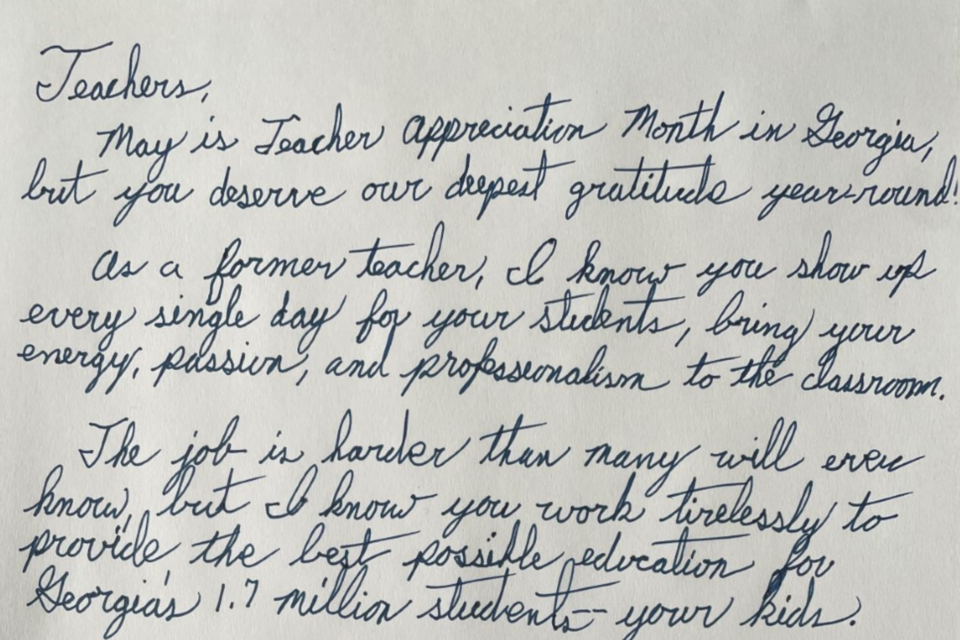 Teachers,
May is Teacher Appreciation Month in Georgia,
but you deserve our deepest gratitude year-round!
As a former teacher, I know you show up
every single day for your students, bring your
energy, passion, and professionalism to the classroom.
The job is harder than many will ever
know, but I know you work tirelessly to
provide the best possible education for
Georgia's 1.7 million students -- your kids.